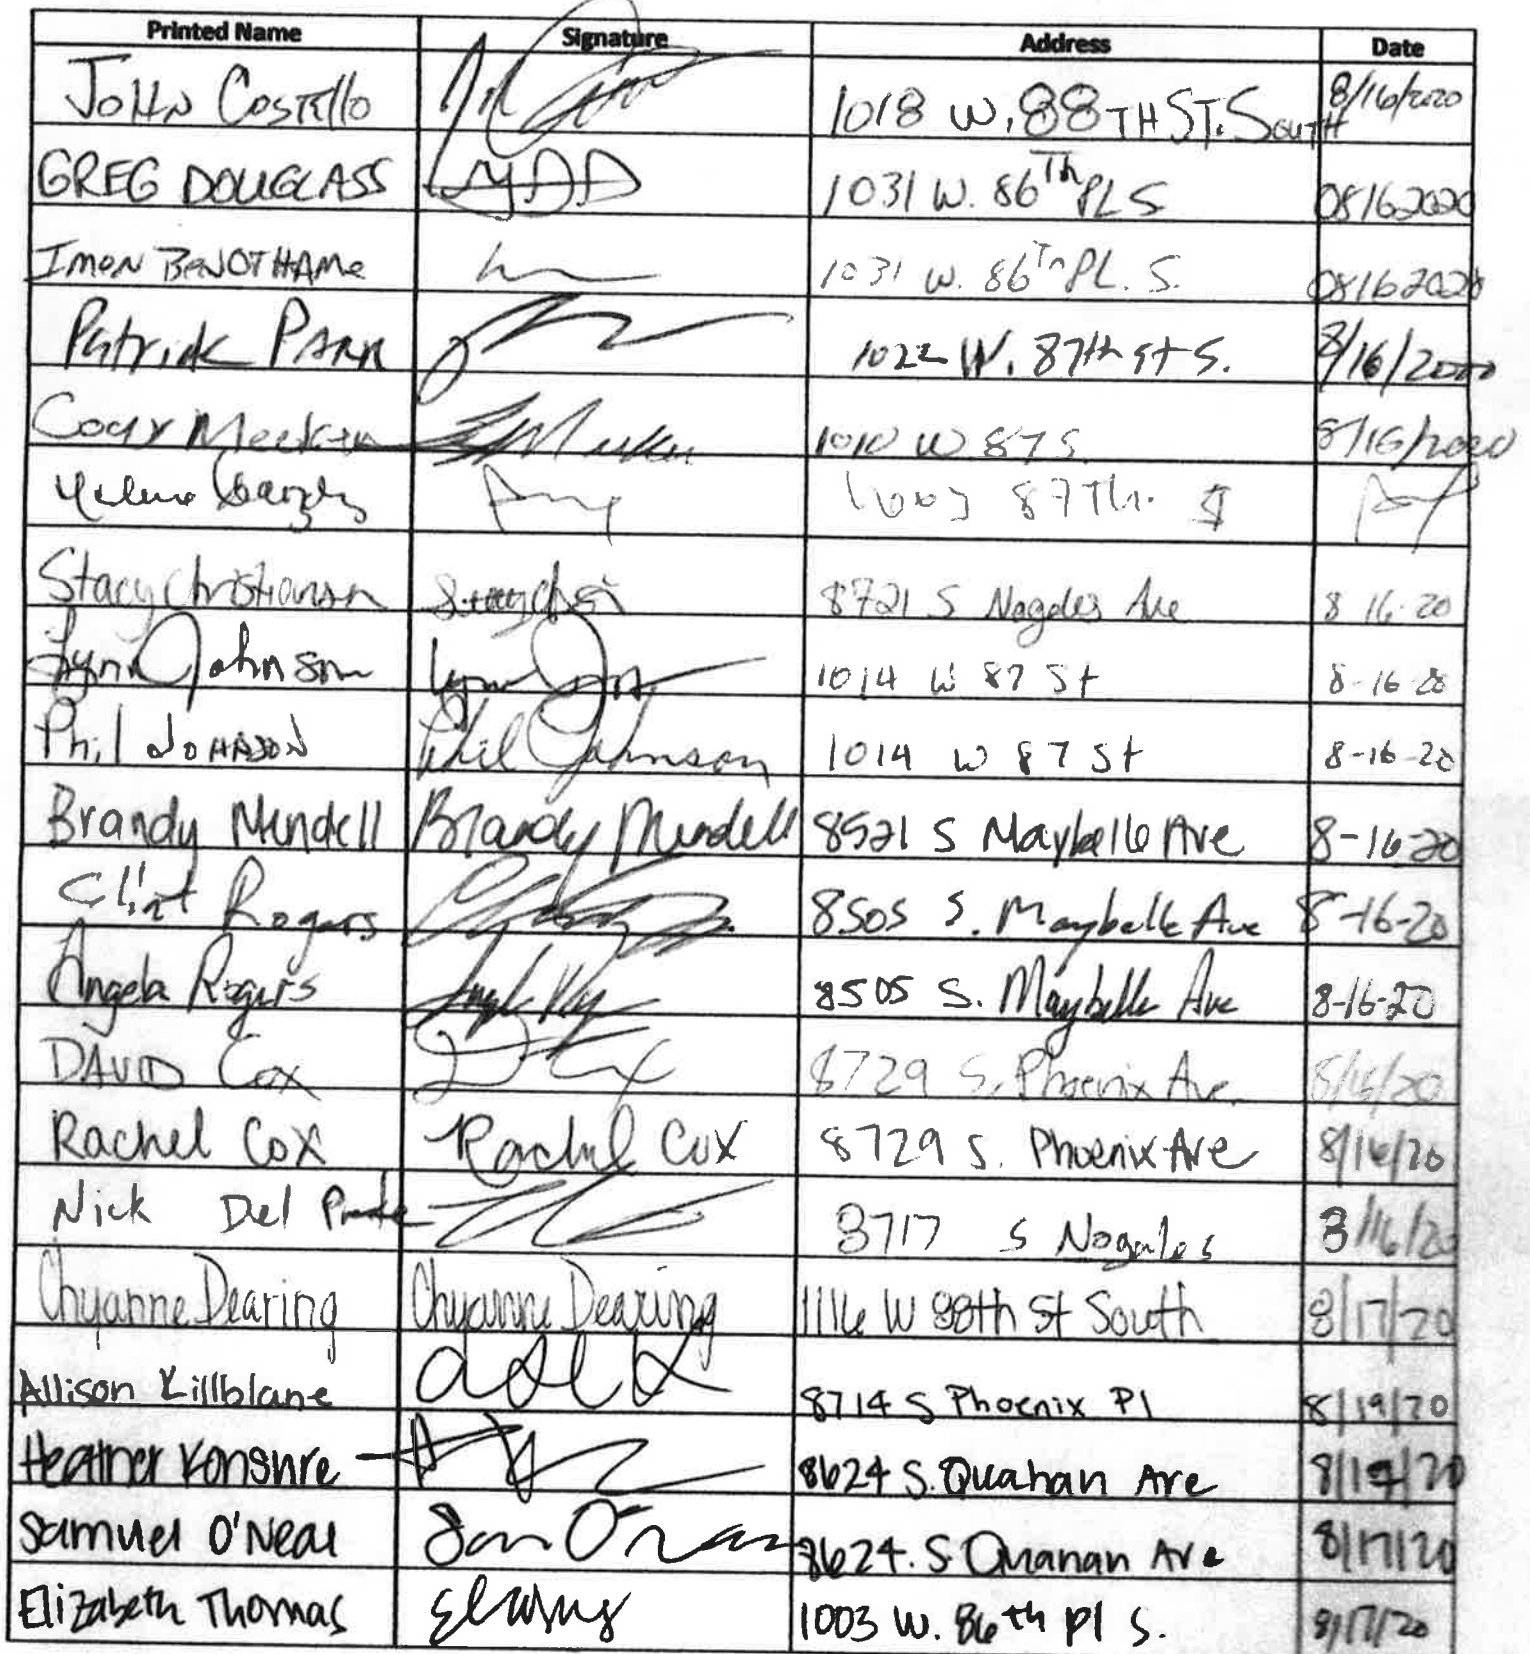 Printed Name Signature Address Date
JOHN COSTELLO 1018 W. 88TH ST. SOUTH 8/16/2020
GREG DOUGLASS 1031 W. 86Th PL S 08162020
IMEN BENOTHAME 1031 W. 86Th PL. S. 08162020
Patrick PARR 1022 W. 87th St S. 8/16/2020
Cody Meeker 1010 W 87 S 8/16/2020
87Th. S
Stacy Christianson 8721 S Nogales Ave 8 16-20
Lynn Johnson Lynn 1014 W 87 St 8-16-20
Phil JOHNSON Phil Johnson 1014 W 87 St 8-16-20
Brandy Mendell Brandy Mendell 8521 S Maybelle Ave 8-16-20
Clint Rogers 8505 S. Maybelle Ave 8-16-20
Angela Rogers 8505 S. Maybelle Ave 8-16-20
DAVID Cox 8729 S. Phoenix Ave. 8/16/20
Rachel Cox Rachel Cox 8729 S. Phoenix Ave 8/16/20
Nick Del 8717 S Nogales 8/16/20
Chyanne Dearing Chyanne Dearing 1116 W 88th St South 8/17/20
Allison Killblane 8714 S Phoenix Pl 8/19/20
Heather Konshire 8624 S. Quanah Ave 20
Samuel O'Neal Sam O'Neal 8624. S. Quanah Ave 8/17/20
Elizabeth Thomas 1003 W. 86th Pl S. 8/17/20